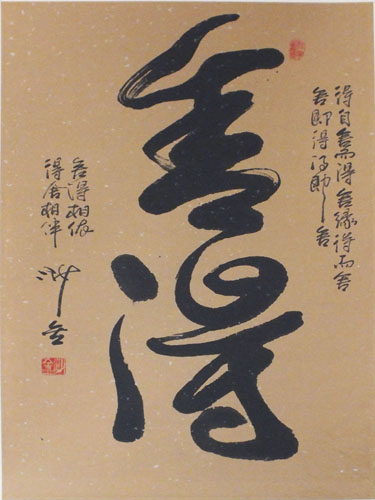 得自舍而得舍缘得而舍
舍即得得即舍
舍得
舍得相依
得舍相伴